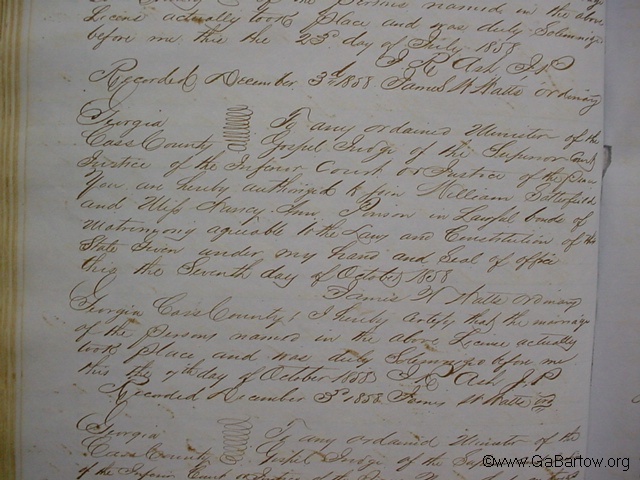 County of the Persons named in the above
License actually took Place and was duly Solemnize
before me this the 23d day of July 1858
J R Ash J.P
Recorded December 3d 1858 James W Watts ordinary
Georgia
Cass County
To any ordained Minister of the
Gospel Judge of the Superior Court
Justice of the Inferior Court or Justice of the Peace
You are hereby authorized to join William Satterfield
and Miss Nancy Ann Pinson in Lawful bonds of
Matrimony agreeable to the Laws and Constitution of this
State Given under my hand and Seal of office
this the Seventh day of October 1858
James W Watts ordinary
Georgia Cass County I hereby certify that the marriage
of the Persons named in the above License actually
took Place and was duly before me
this the 7th day of October 1858 J R Ash J.P
Recorded December 3d 1858 James W Watts ord
Georgia
Cass County
To any ordained Minister of the
Gospel Judge of the Superior Court
of the Inferior Court or Justice of the
©www.GaBartow.org